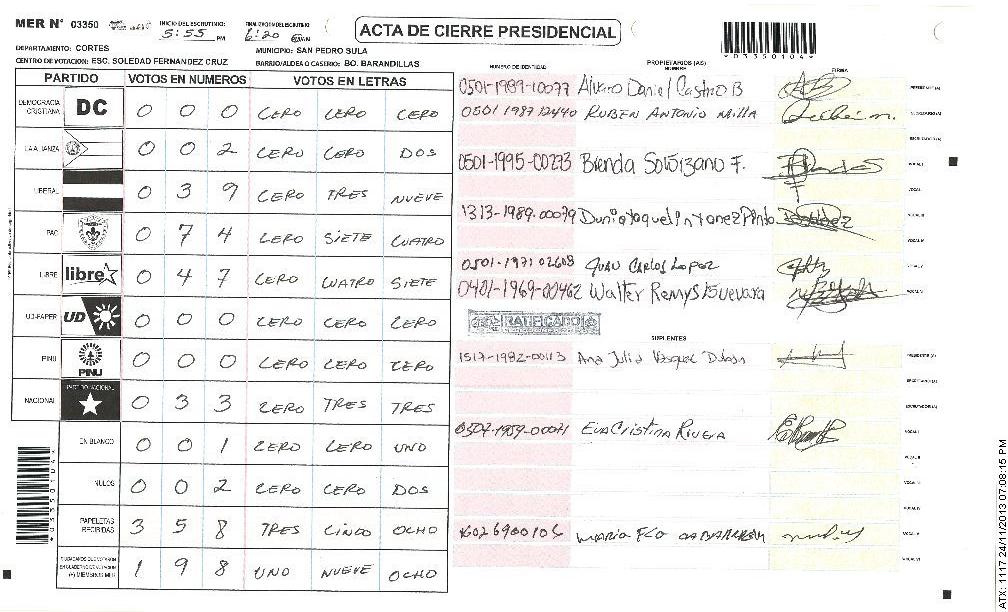 MER N° 03350
INICIO DEL ESCRUTINIO
5:55 PM
FINALIZACION DEL ESCRUTINIO
6:20
ACTA DE CIERRE PRESIDENCIAL
*0335 0104*
DEPARTAMENTO: CORTES
MUNICIPIO: SAN PEDRO SULA
CENTRO DE VOTACION: ESC. SOLEDAD FERNANDEZ CRUZ
BARRIO/ALDEA O CASERIO: BO. BARANDILLAS
PARTIDO VOTOS EN NUMEROS VOTOS EN LETRAS
DEMOCRACIA CRISTIANA DC 0 0 0 CERO CERO CERO
LA ALIANZA 0 0 2 CERO CERO DOS
LIBERAL 0 3 9 CERO TRES NUEVE
PAC 0 7 4 CERO SIETE CUATRO
LIBRE libre 0 4 7 CERO CUATRO SIETE
UD-FAPER UD 0 0 0 CERO CERO CERO
PINU PINU 0 0 0 CERO CERO CERO
NACIONAL PARTIDO NACIONAL 0 3 3 CERO TRES TRES
EN BLANCO 0 0 1 CERO CERO UNO
NULOS 0 0 2 CERO CERO DOS
PAPELETAS RECIBIDAS 3 5 8 TRES CINCO OCHO
CIUDADANOS QUE VOTARON EN CUADERNO DE VOTACION (+) MIEMBROS MER 1 9 8 UNO NUEVE OCHO
NUMERO DE IDENTIDAD
PROPIETARIOS (AS)
NOMBRE
FIRMA
0501-1989-10077 Alvaro Daniel Castro B PRESIDENTE(A)
0501 1987 12440 RUBEN ANTONIO MILLA SECRETARIO(A)
ESCRUTADOR(A)
0501-1995-00273 Brenda F. VOCAL I
VOCAL II
1313-1989-00079 VOCAL III
VOCAL IV
0501-1971 02608 JUAN CARLOS LOPEZ VOCAL V
0401-1969-00462 Walter Guevara VOCAL VI
RATIFICADO
SUPLENTES
1517-1982-00113 Ana Julia PRESIDENTE (A)
SECRETARIO(A)
ESCRUTADOR(A)
EVA CRISTINA RIVERA VOCAL I
VOCAL II
VOCAL III
VOCAL IV
MARIA VOCAL V
VOCAL VI
ATX: 1117 24/11/2013 07:08:15 PM